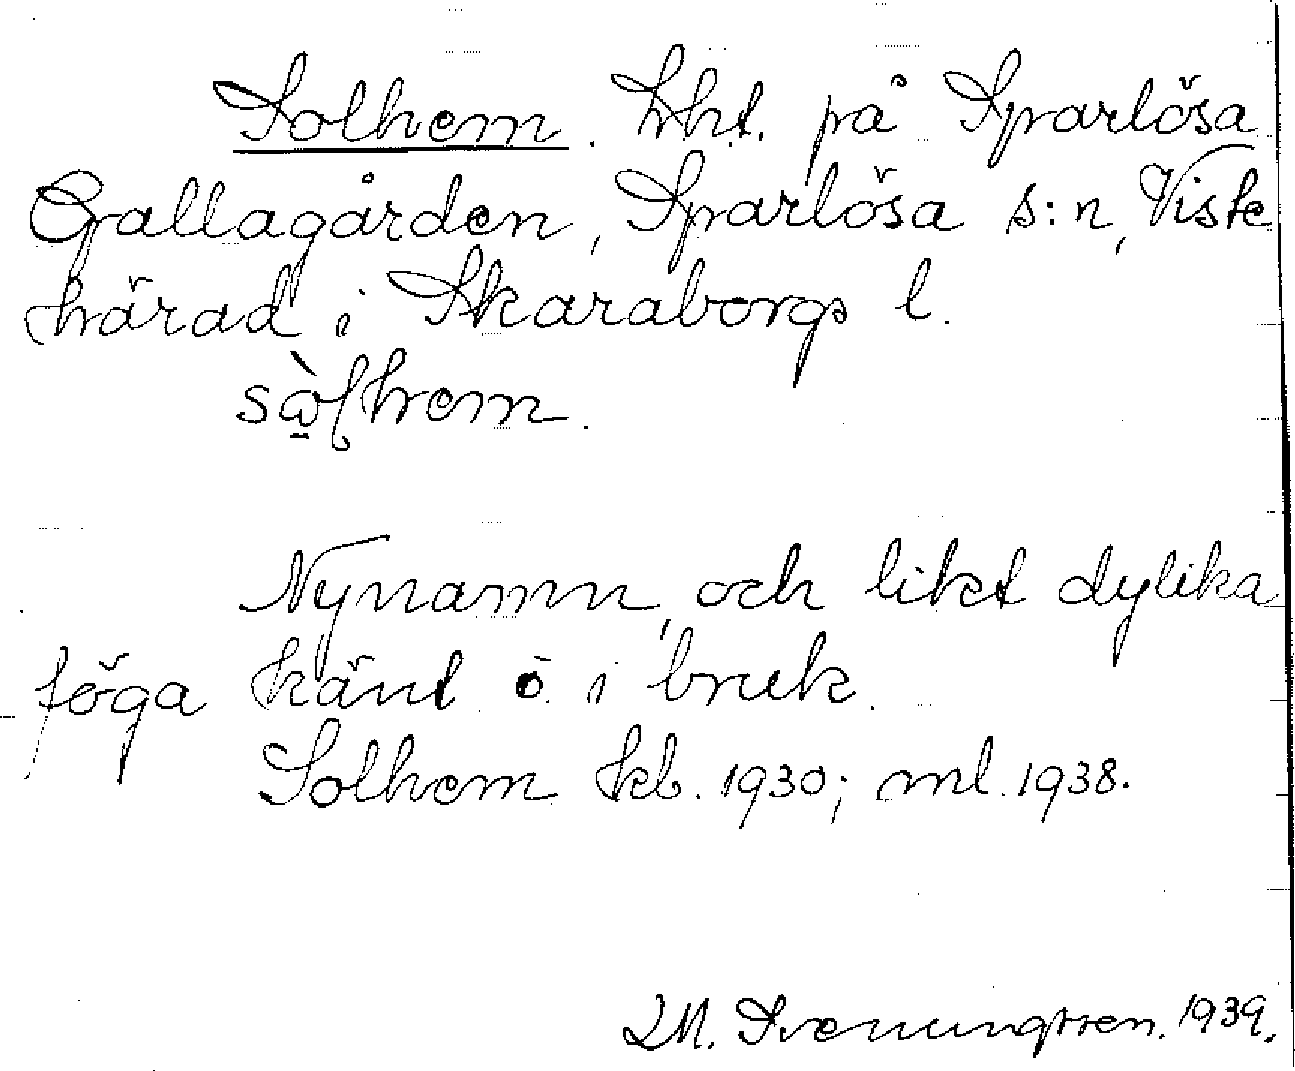 Solhem. Lht. på Sparlösa
Gallagården, Sparlösa s:n, Viste
härad i Skaraborgs l.
sòlhem.
Nynamn, och likt dylika
föga känt o. i bruk.
Solhem kb. 1930; ml. 1938.
M. Svenungsson. 1939.